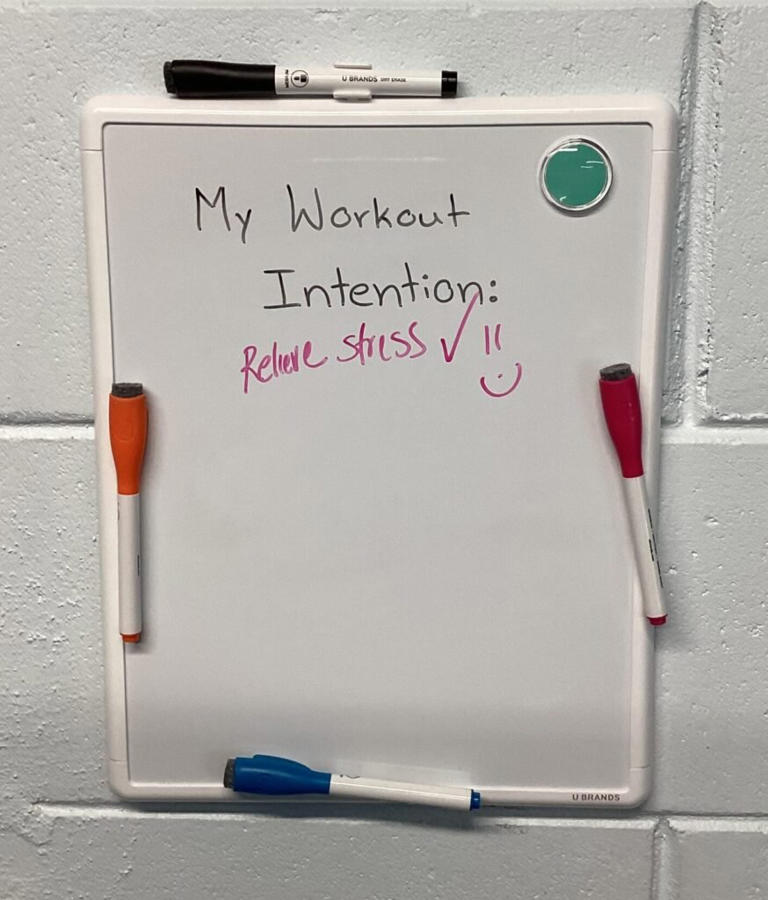 U BRANDS DRY ERASE
My Workout
Intention:
Relieve stress ✓ !!
U BRANDS